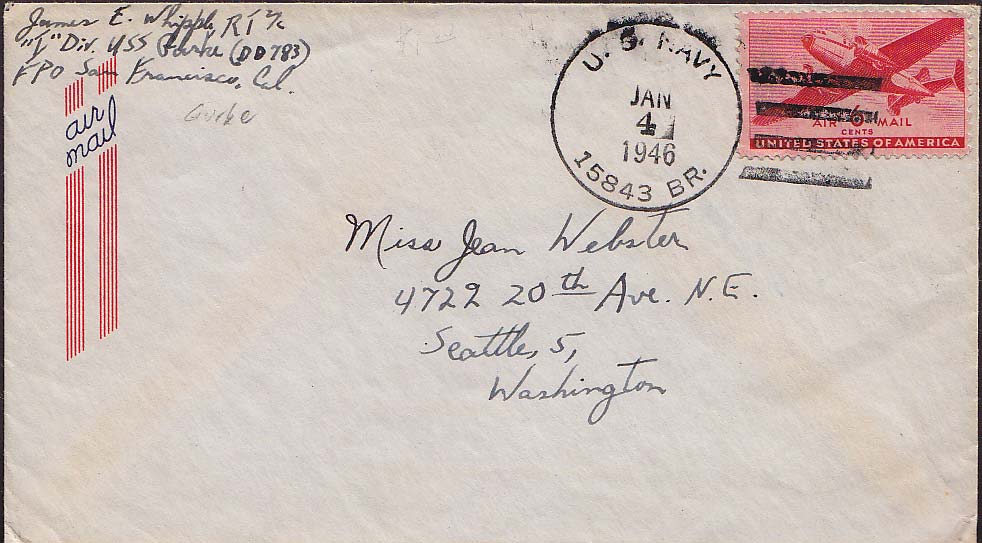 James E. Whipple RT 2/c
"I" Div. USS Gurke (DD783)
FPO San Francisco, Cal.
air
mail
Gurke
U. S. NAVY
JAN
4
1946
15843 BR.
AIR 6 MAIL
CENTS
UNITED STATES OF AMERICA
Miss Jean Webster
4722 20th Ave. N.E.
Seattle, 5,
Washington